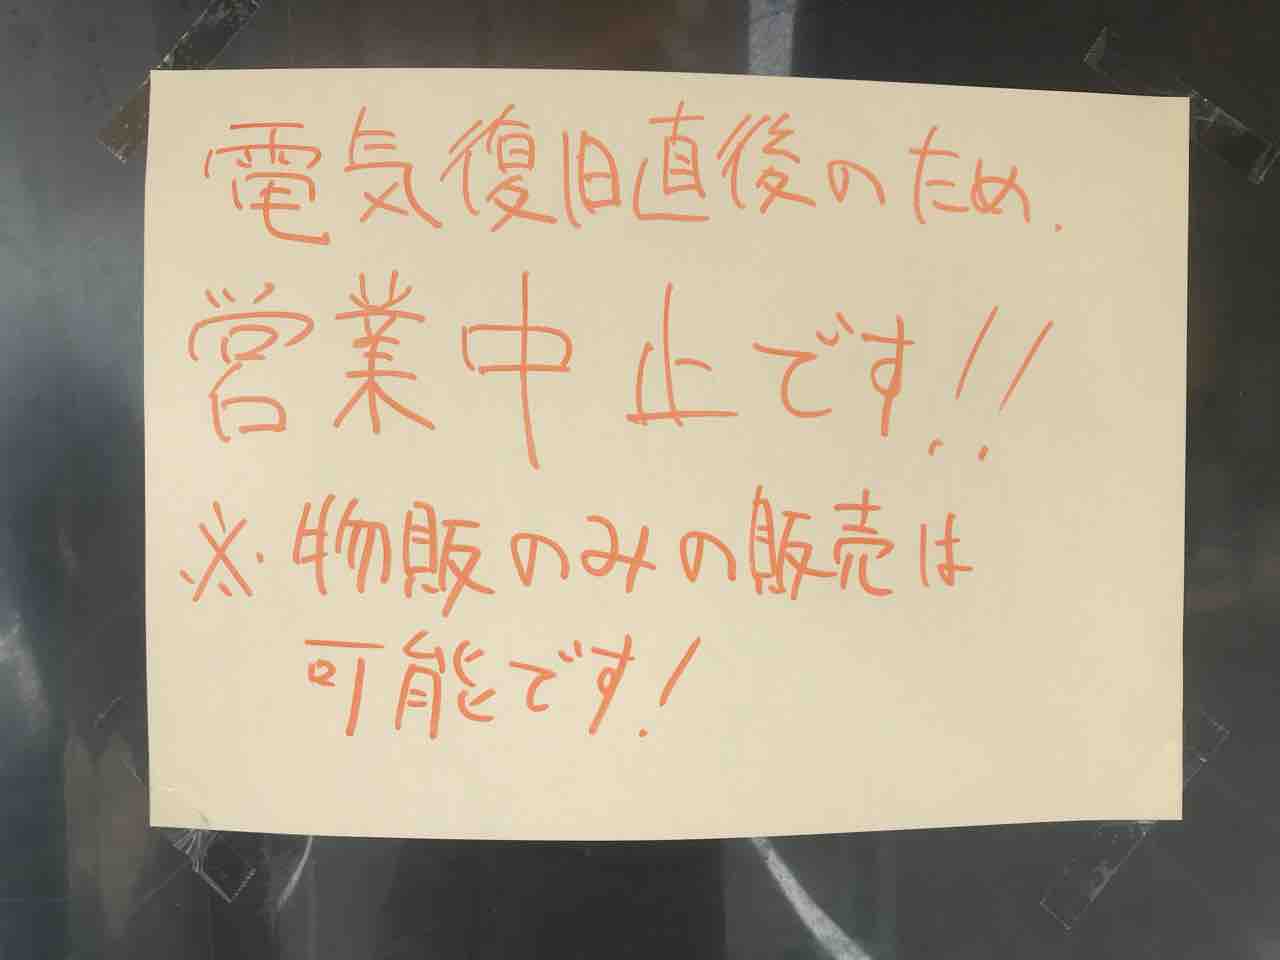 電気復旧直後のため.
営業中止です!!
※物販のみの販売は
可能です!